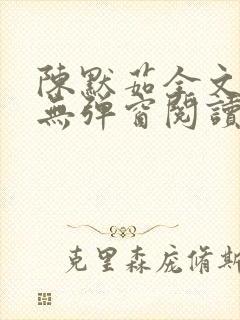 陳默茹全文
無彈窗閱讀
克里森庞脩斯